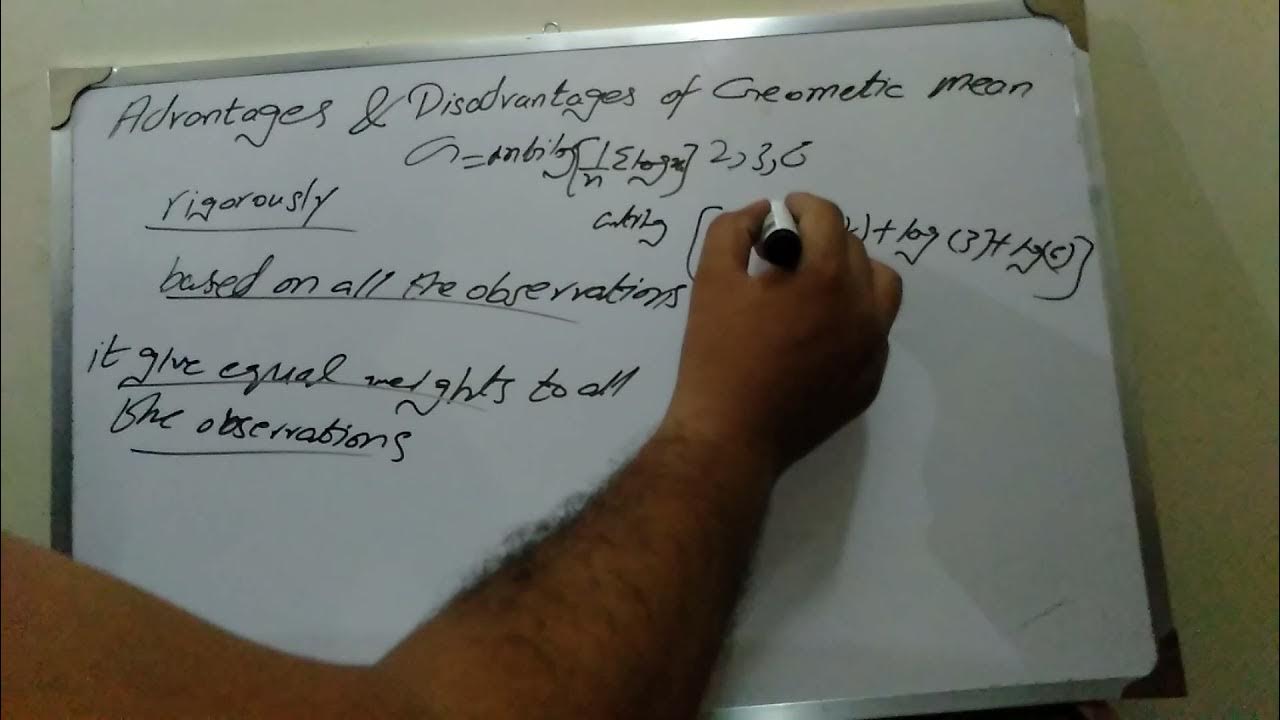 Advantages & Disadvantages of Geometic mean
G = antilog [1/n Σ log x] 2, 3, 6
rigorously
antilog [ 2) + log (3) + log(6) ]
based on all the observations
it give equal weights to all
the observations